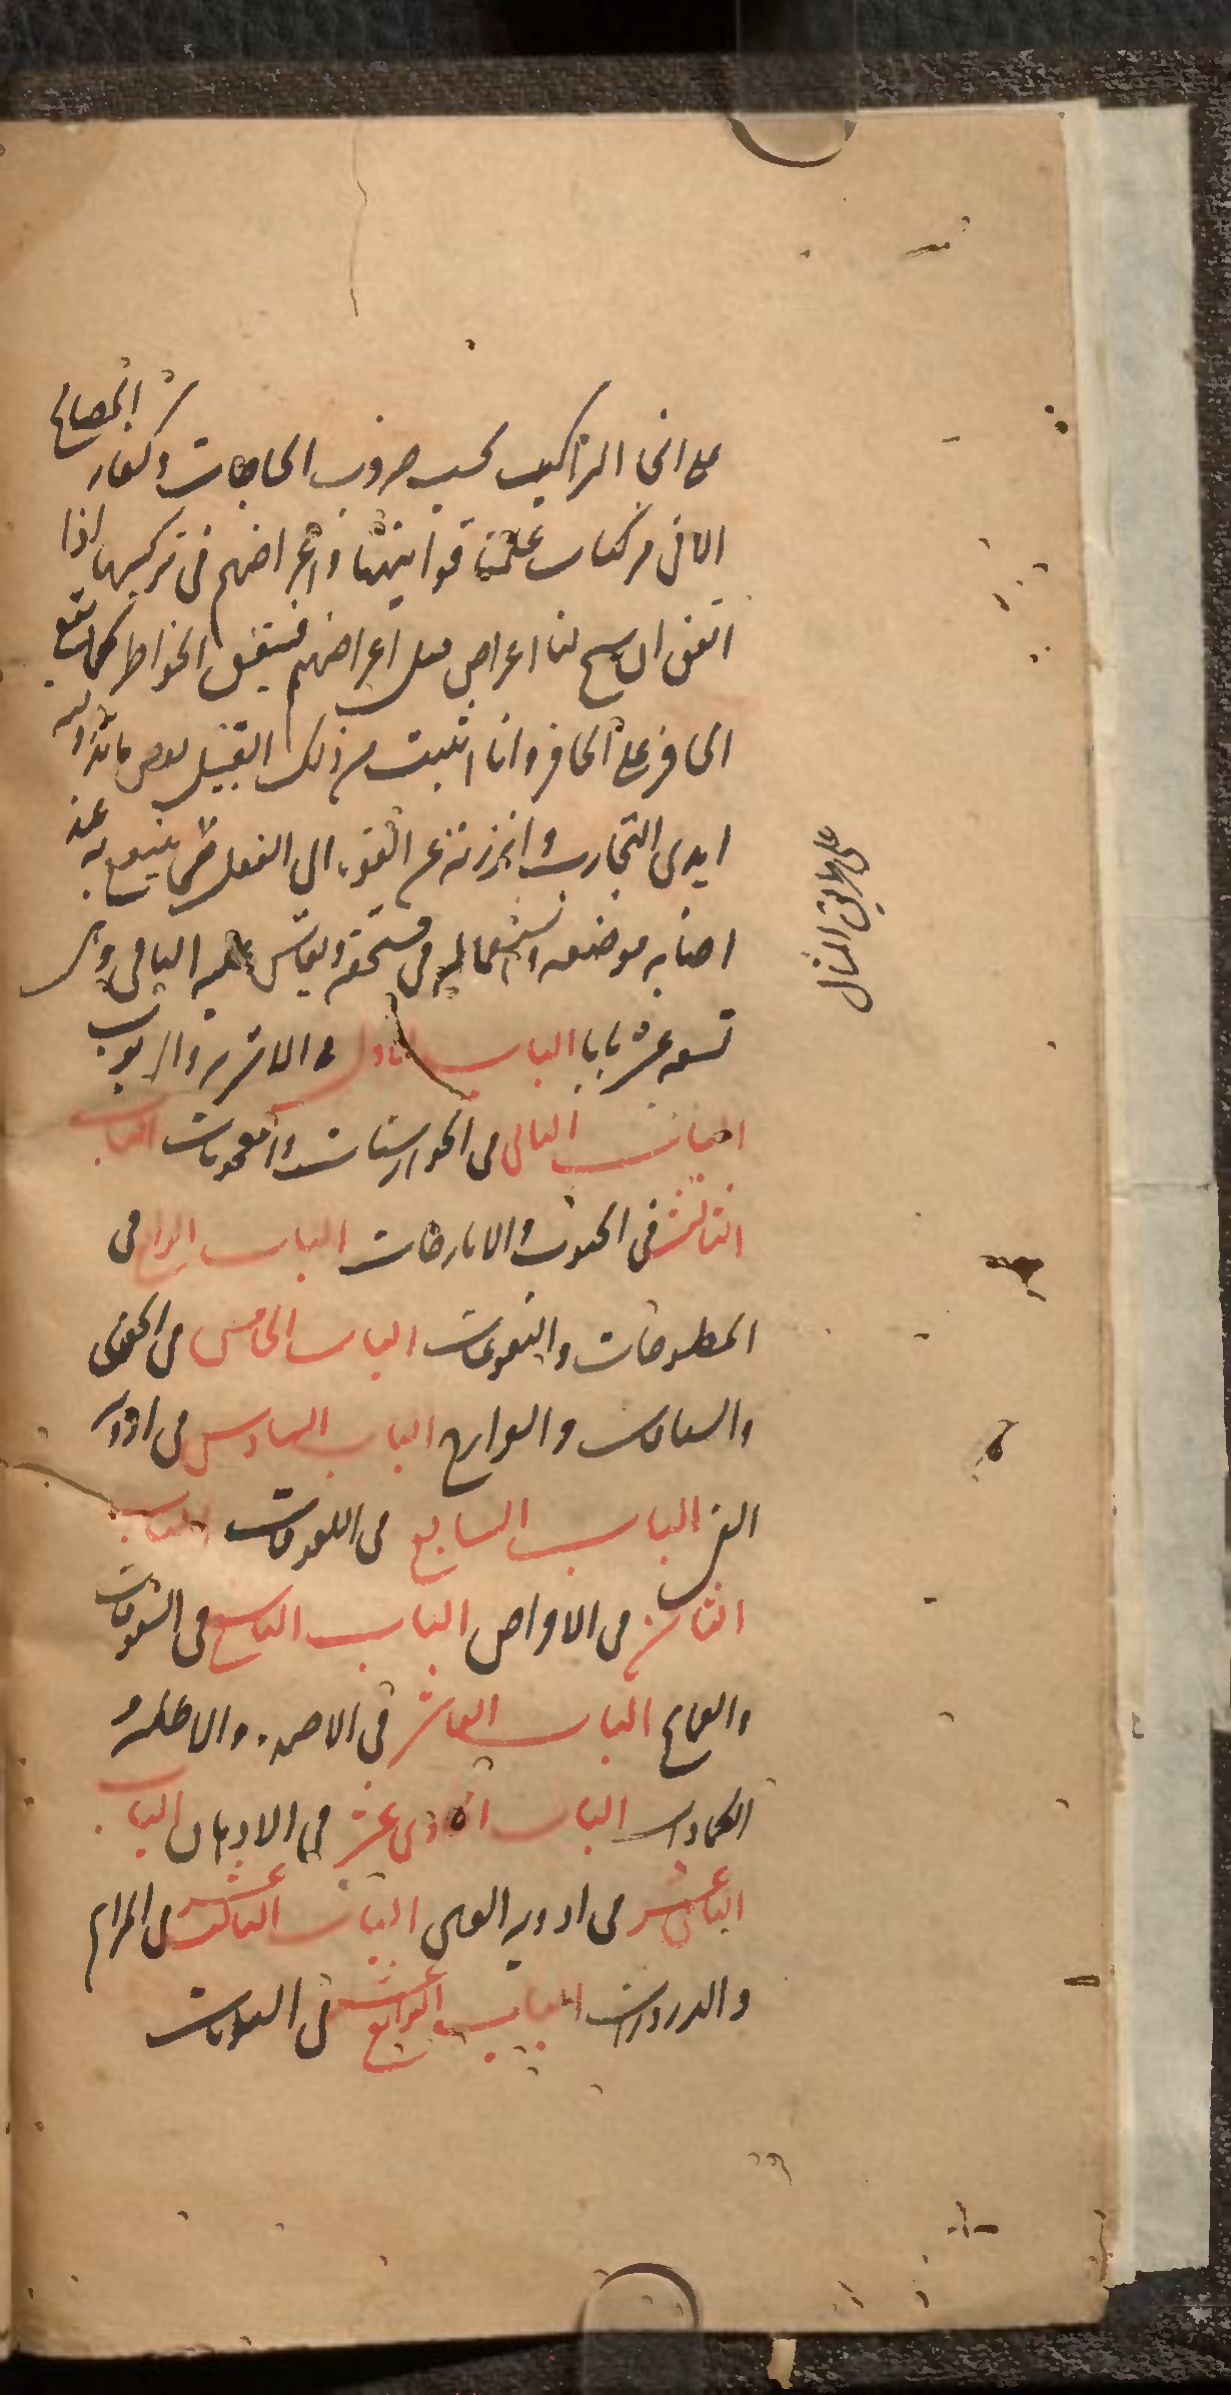 على انحا التراكيب بحسب ضروب الحاجات وكفار المصالح
الاتى من كتاب علمنا قوانينها واغراضهم فى تركيبها اذا
اتفق ان سنح لنا اعراض مثل اغراضهم فيتفق الخواطر كما يقع
الحافر على الحافر وانا اثبت من ذلك القبيل بعض ما تداولته
ايدى التجارب وابرزته عن القوة الى الفعل حتى ينتفع به عند
اصابه موضعه واستعماله فى مستحقه ويقاس عليه الباقى وهى
تسعه عشر بابا الباب الاول فى الاشربه والربوب
الباب الثانى فى الجوارشنات والمعجونات الباب
الثالث فى الحبوب والايارجات الباب الرابع فى
المطبوخات والنقوعات الباب الخامس فى الحقن
والشيافات والفوارج الباب السادس فى ادوية
القى الباب السابع فى اللعوقات الباب
الثامن فى الاقراص الباب التاسع فى السفوفات
والقمايح الباب العاشر فى الاضمده والاطليه و
الكمادات الباب الحادى عشر فى الادهان الباب
الثانى عشر فى ادويه العين الباب الثالث عشر فى المراهم
والذرورات الباب الرابع عشر فى السعوطات
على طريق المثال